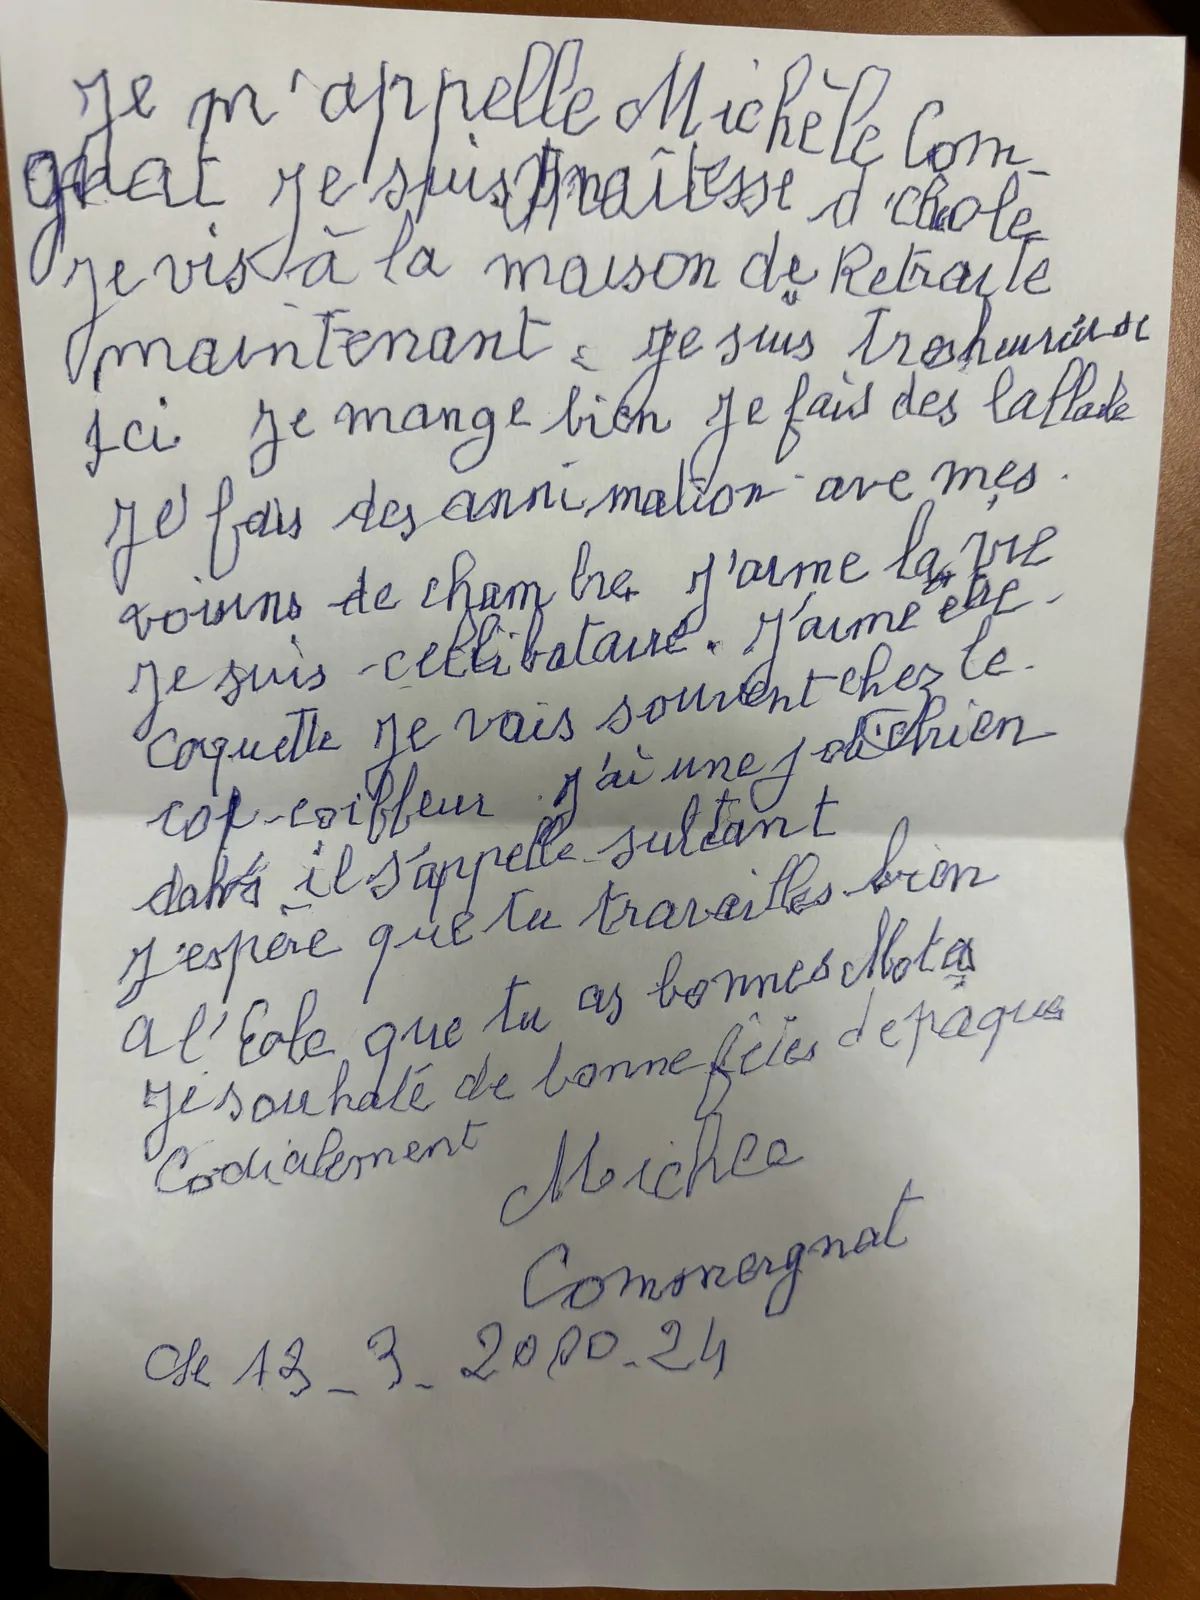 Je m'appelle Michèle Com-
gnat je suis maîtesse d'école
je vis à la maison de Retraite
maintenant. je suis tres heureuse
Ici je mange bien je fais des
je fais des annimation ave mes.
voisins de chambre. j'aime la vie
je suis cellibataire. j'aime être
coquette je vais souvent chez le.
coiffeur. j'ai une joli chien
il s'appelle sultant
j'espère que tu travailles bien
a l'Eole que tu as bonnes Notes
je souhaté de bonne fêtes de pâques
Codialement Michle
Commergnat
Le 13_3_2000.24